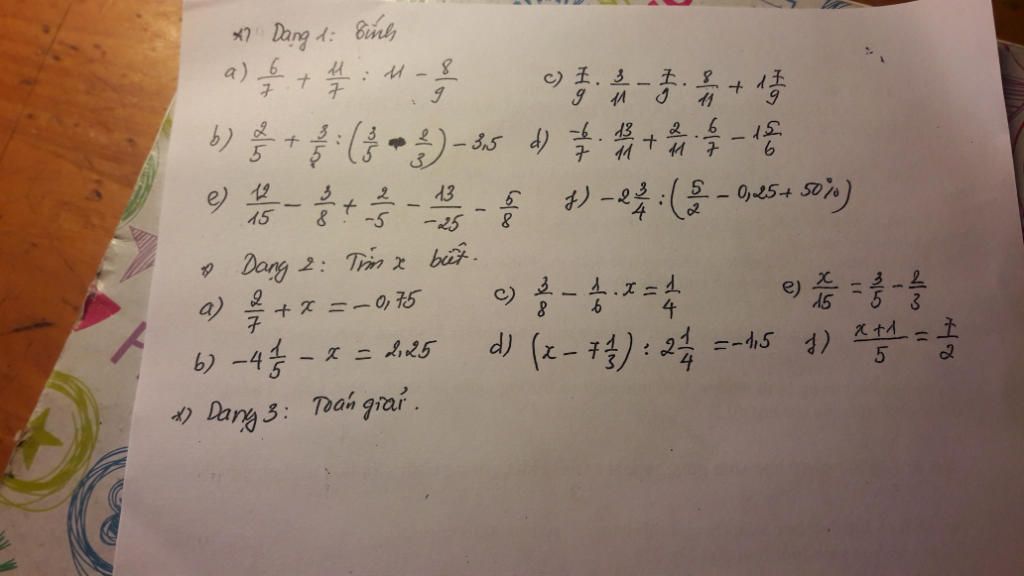 *) Dạng 1: Tính
a) 6/7 + 11/7 : 11 - 8/9    c) 7/9 . 3/11 - 7/9 . 8/11 + 1 7/9
b) 2/5 + 3/5 : (3/5 - 2/3) - 3,5    d) -6/7 . 13/11 + 2/11 . 6/7 - 1 5/6
e) 12/15 - 3/8 + 2/-5 - 13/-25 - 5/8    f) -2 3/4 : (5/2 - 0,25 + 50%)
*) Dạng 2: Tìm x biết.
a) 2/7 + x = -0,75    c) 3/8 - 1/6 . x = 1/4    e) x/15 = 3/5 - 2/3
b) -4 1/5 - x = 2,25    d) (x - 7 1/3) : 2 1/4 = -1,5    f) x+1/5 = 7/2
*) Dạng 3: Toán giải.